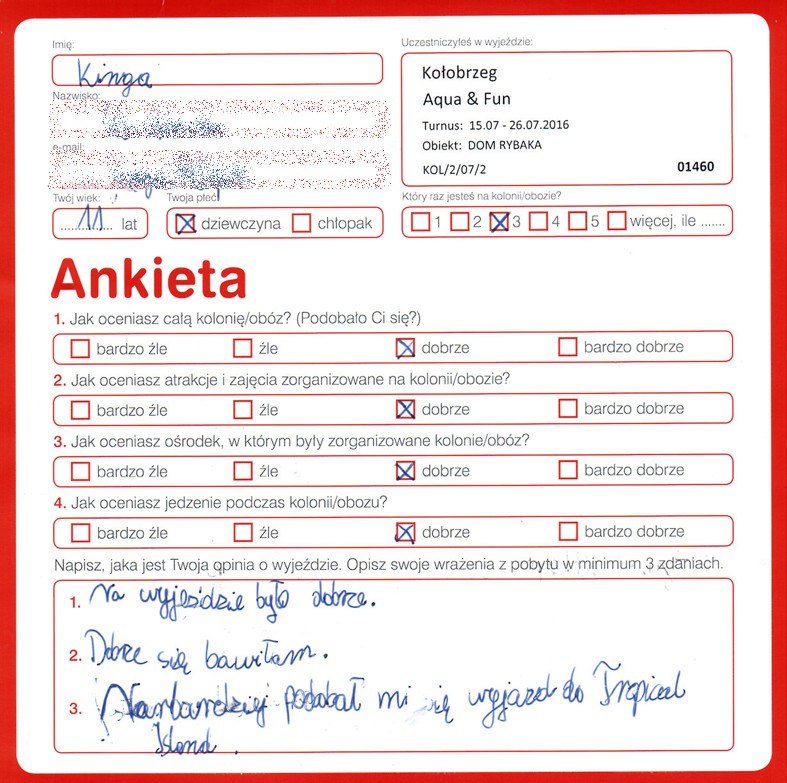 Imię:
Kinga
Nazwisko:
e-mail:
Twój wiek:
11 lat
Twoja płeć
dziewczyna chłopak
Uczestniczyłeś w wyjeździe:
Kołobrzeg
Aqua & Fun
Turnus: 15.07 - 26.07.2016
Obiekt: DOM RYBAKA
KOL/2/07/2 01460
Który raz jesteś na kolonii/obozie?
1 2 3 4 5 więcej, ile .......
Ankieta
1. Jak oceniasz całą kolonię/obóz? (Podobało Ci się?)
bardzo źle źle dobrze bardzo dobrze
2. Jak oceniasz atrakcje i zajęcia zorganizowane na kolonii/obozie?
bardzo źle źle dobrze bardzo dobrze
3. Jak oceniasz ośrodek, w którym były zorganizowane kolonie/obóz?
bardzo źle źle dobrze bardzo dobrze
4. Jak oceniasz jedzenie podczas kolonii/obozu?
bardzo źle źle dobrze bardzo dobrze
Napisz, jaka jest Twoja opinia o wyjeździe. Opisz swoje wrażenia z pobytu w minimum 3 zdaniach.
1. Na wyjeździe było dobrze.
2. Dobrze się bawiłam.
3. Najbardziej podobał mi się wyjazd do Tropical
Island.